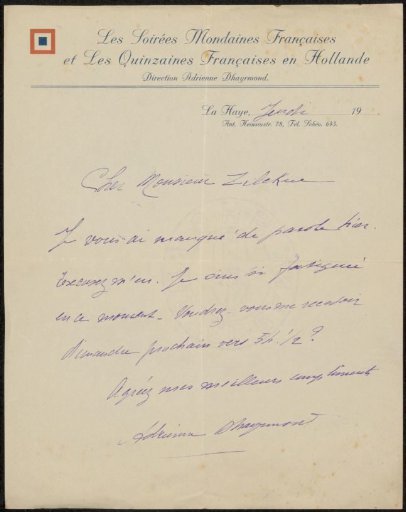 Les Soirées Mondaines Françaises
et Les Quinzaines Françaises en Hollande
Direction Adrienne Dhaymond.
La Haye, Jeudi 19
Ant. Heinsiusstr. 78, Tel. Schev. 695.
Cher Monsieur Zilcken
Je vous ai manqué de parole hier.
Excusez m'en. Je suis si fatiguée
en ce moment. Voudrez-vous me recevoir
dimanche prochain vers 5h 1/2?
Agréez mes meilleurs compliments
Adrienne Dhaymond